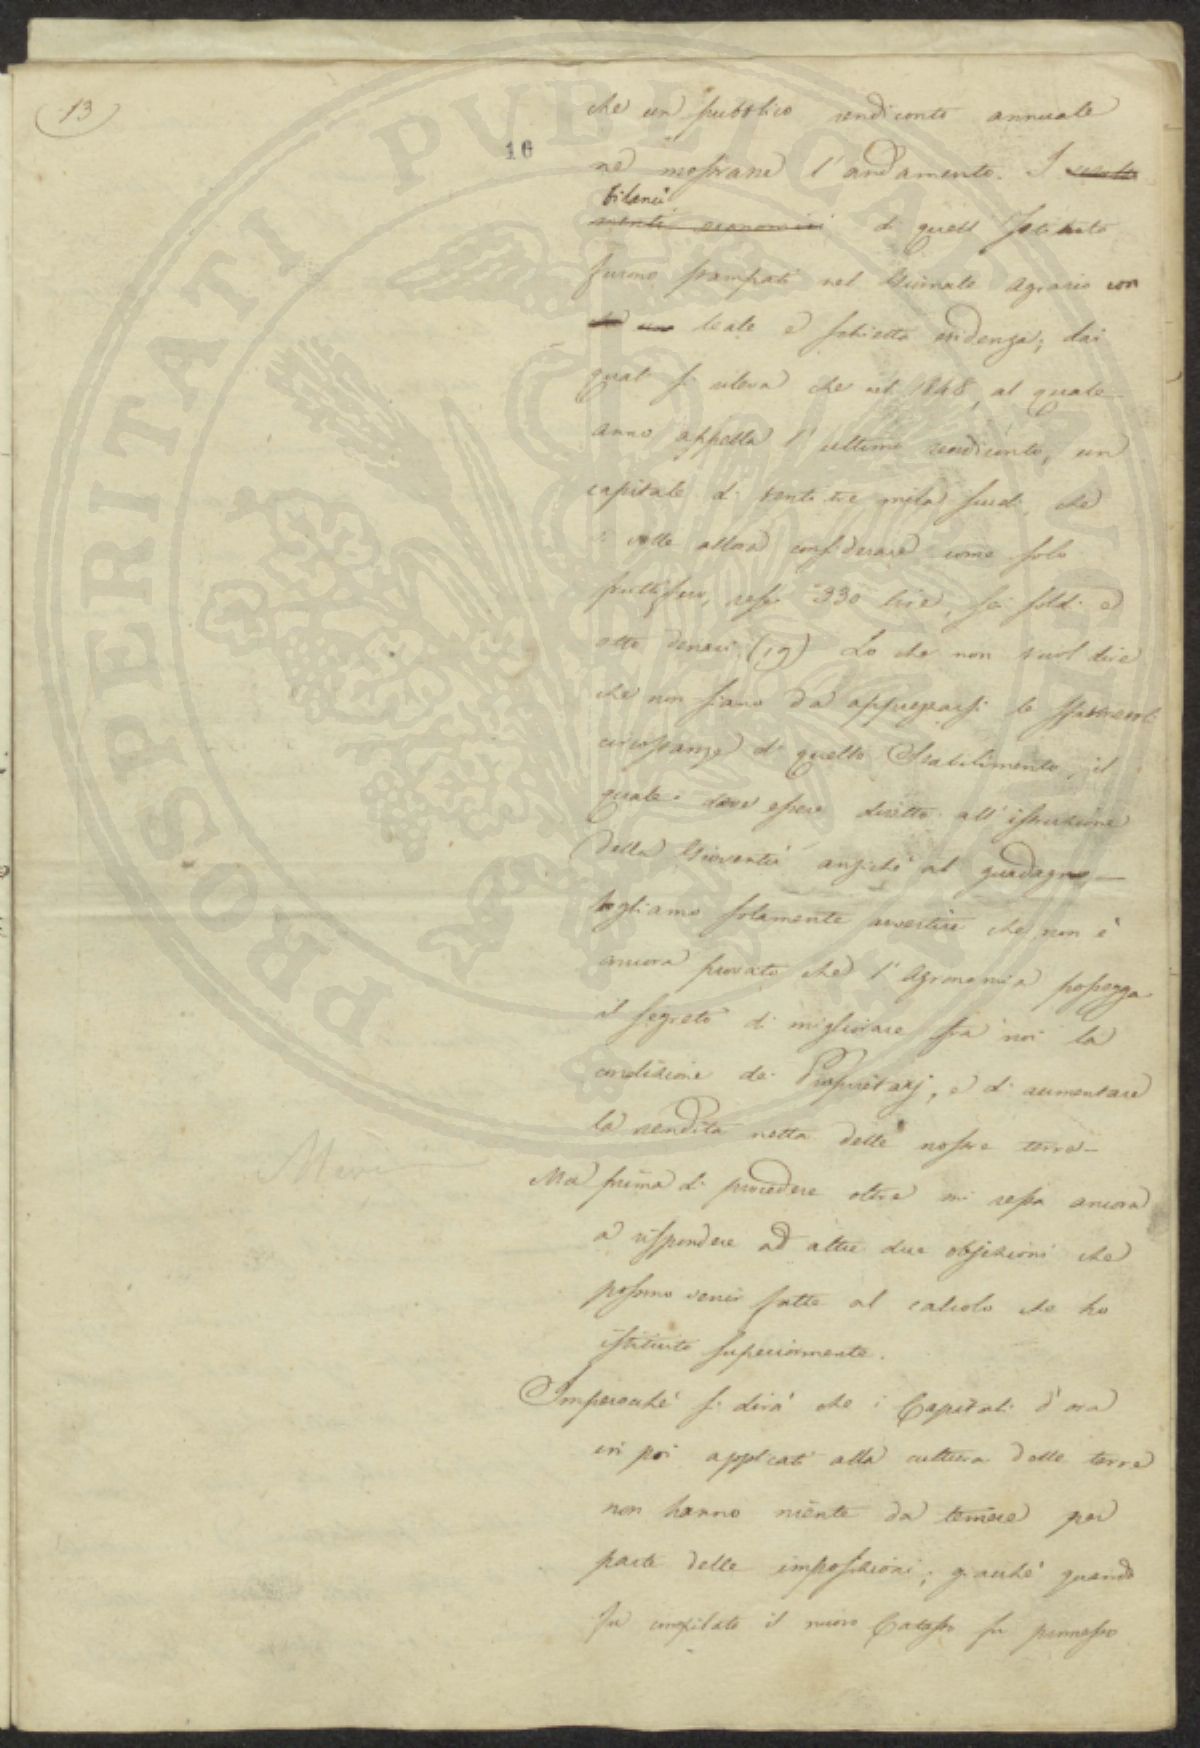 13
16
che un pubblico rendiconto annuale
ne mostrane l'andamento. I
bilanci
di quell' Istituto
furono stampati nel Giornale Agrario con
leale e schietta evidenza; dai
quali si rileva che nel 1848, al quale
anno appella l'ultimo rendiconto, un
capitale di venti tre mila scudi, che
si volle allora considerare come solo
fruttifero, rese 330 lire, sei soldi e
otto denari (19) Lo che non vuol dire
che non siano da apprezzarsi le
circostanze di quello Stabilimento, il
quale deve essere diretto all'istruzione
della Gioventù anziché al guadagno —
Vogliamo solamente avvertire che non è
ancora provato che l'Agronomia possegga
il segreto di migliorare fra noi la
condizione dei Proprietarj, e di aumentare
la rendita netta delle nostre terre —
Ma prima di procedere oltre mi resta ancora
a rispondere ad altre due objezioni che
possono venir fatte al calcolo che ho
istituito superiormente.
Imperocché si dirà che i Capitali d'ora
in poi applicati alla cultura delle terre
non hanno niente da temere per
parte delle imposizioni; giacché quando
fu compilato il nuovo Catasto fu permesso
PROSPERITATI PUBLICAE